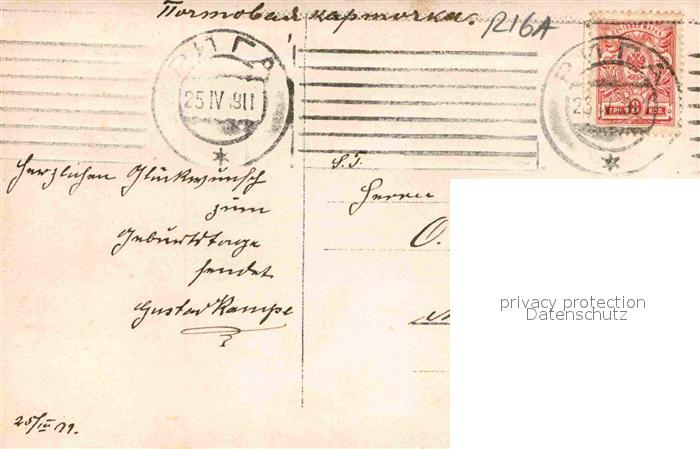 Почтовая карточка.
R16A
РИГА
25 IV 911
РИГА
23
3
КОП.
S. T.
Herzlichen Glückwunsch
zum
Geburtstage
sendet
Gustav Kampe
Herrn
O.
25/IV 11.
privacy protection
Datenschutz